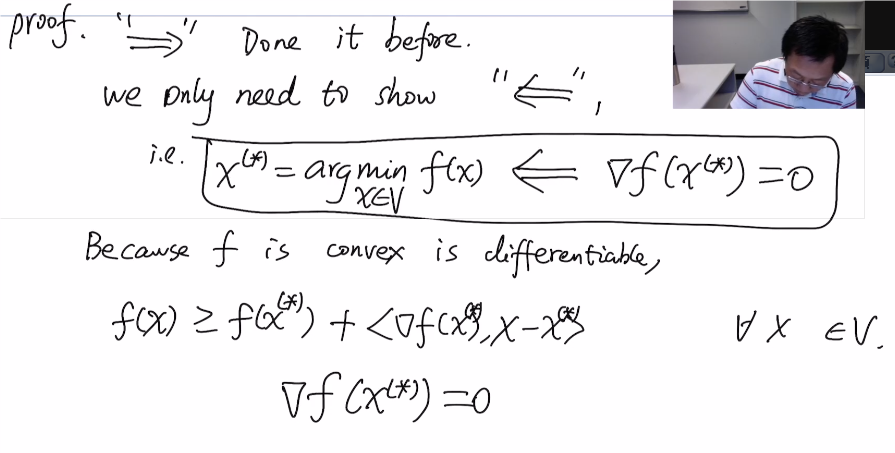 proof. "⟹" Done it before.
we only need to show "⟸",
i.e. x^(*) = argmin_{x∈V} f(x) ⟸ ∇f(x^(*)) = 0
Because f is convex is differentiable,
f(x) ≥ f(x^(*)) + <∇f(x^(*)), x - x^(*)> ∀ x ∈ V.
∇f(x^(*)) = 0